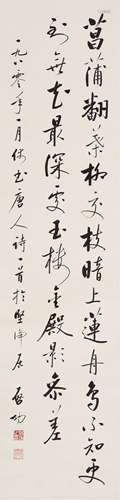 菖蒲翻叶柳交枝暗上莲舟鸟不知更
到无花最深处玉楼金殿影参差
一九八〇年一月俦书唐人诗一首于坚净居 启功